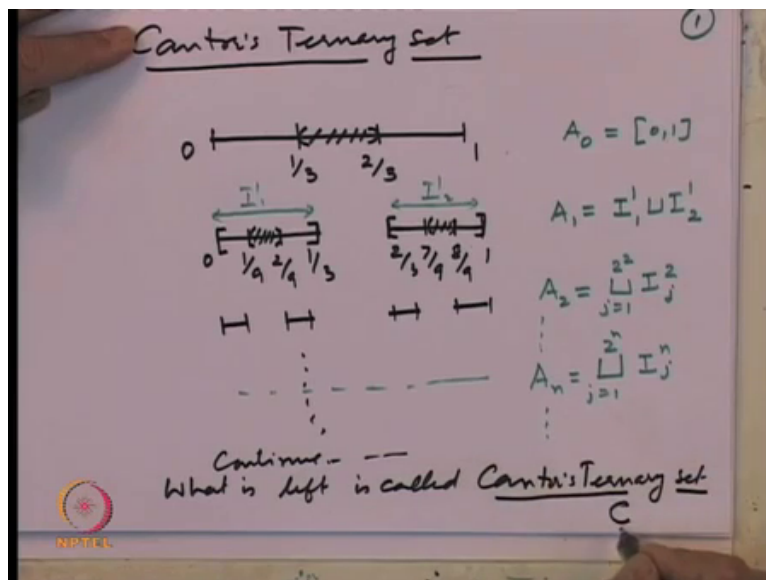 ①
Cantor's Ternary set
0 1/3 2/3 1
A₀ = [0,1]
I¹₁ I¹₂
A₁ = I¹₁ ⊔ I¹₂
0 1/9 2/9 1/3 2/3 7/9 8/9 1
A₂ = ⊔_{j=1}^{2²} I²_j
Aₙ = ⊔_{j=1}^{2ⁿ} Iⁿ_j
Continue
What is left is called Cantor's Ternary set
C
NPTEL